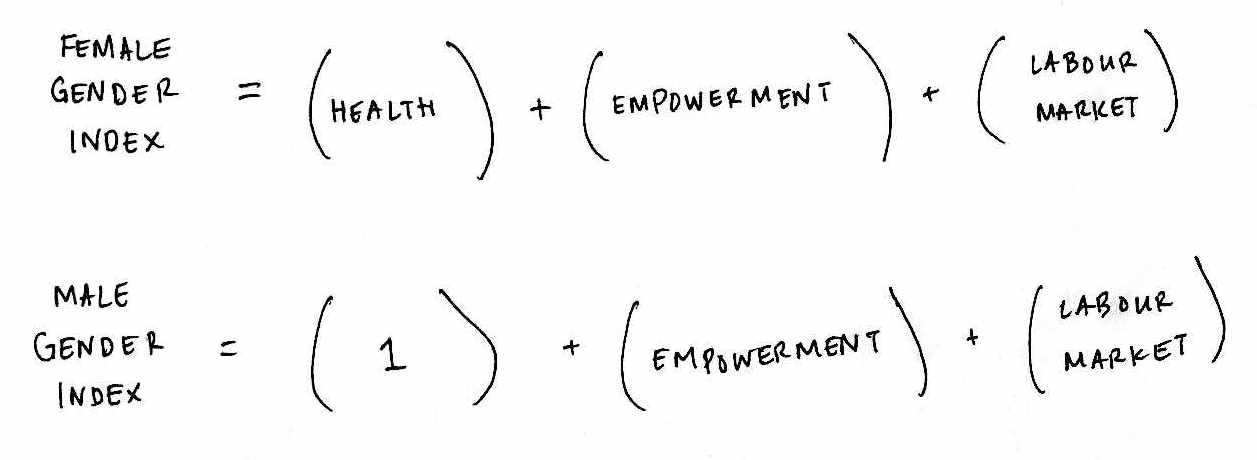 FEMALE GENDER INDEX = (HEALTH) + (EMPOWERMENT) + (LABOUR MARKET)
MALE GENDER INDEX = (1) + (EMPOWERMENT) + (LABOUR MARKET)